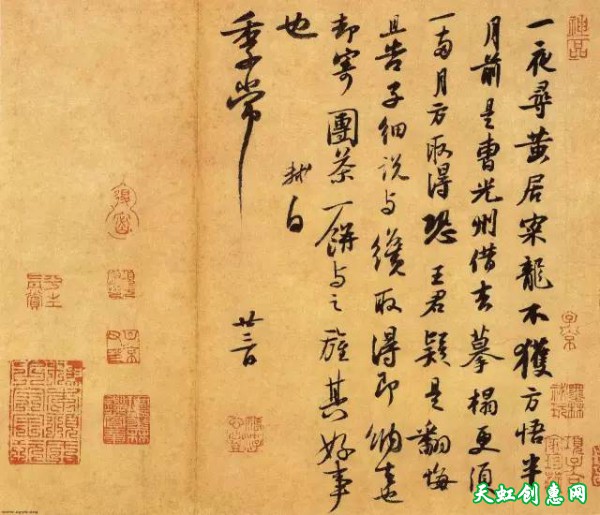 神品
一夜尋黄居寀龍不獲方悟半
月前是曹光州借去摹搨更須
一兩月方取得恐王君疑是翻悔
且告子細說与纔取得即納去也
却寄團茶一餅与之旌其好事
也
軾白
季常
廿三日
天虹创惠网